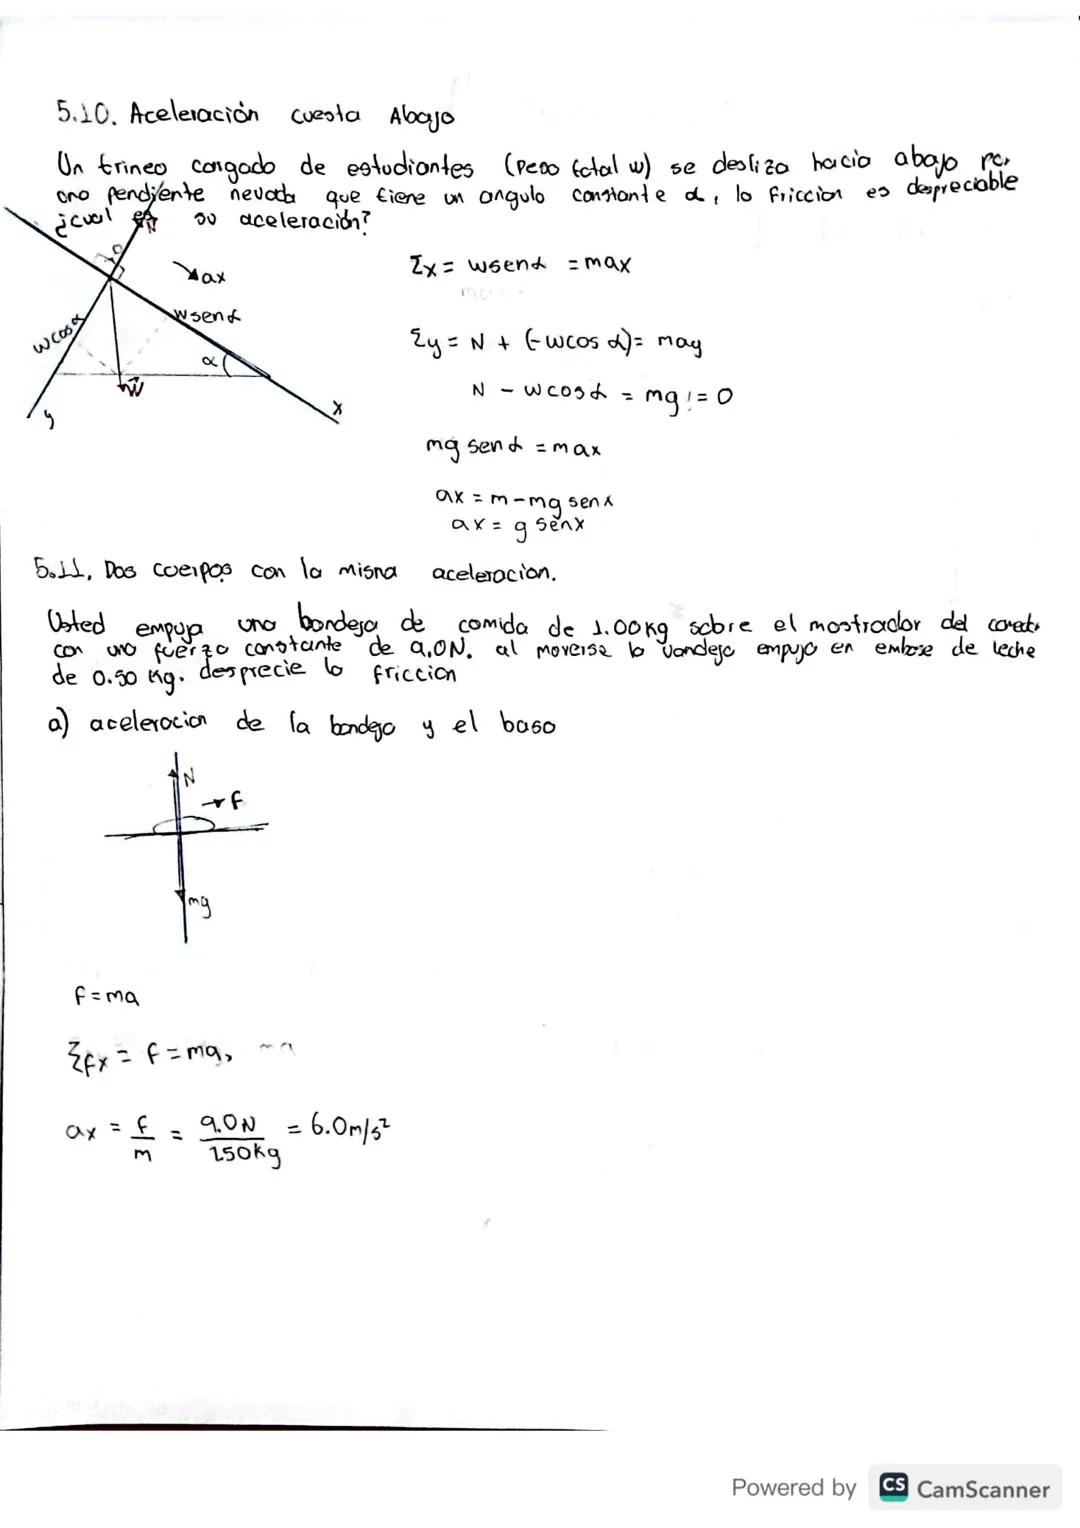 5.10. Aceleración cuesta Abajo
Un trineo cargado de estudiantes (Peso total w) se desliza hacia abajo por
una pendiente nevada que tiene un angulo constante α, la friccion es despreciable
¿cual es su aceleración?
N
ax
wsenα
wcosα
α
w
x
y
Σx = wsenα = max
Σy = N + (-wcos α) = may
N - wcosα = mg! = 0
mg senα = max
ax = m-mg senx
ax = g senx
5.11. Dos cuerpos con la misma aceleracion.
Usted empuja una bandeja de comida de 1.00kg sobre el mostrador del
con una fuerza constante de 9.0N. al moverse la vandeja empuja en embase de leche
de 0.50 kg. desprecie la friccion
a) aceleracion de la bandeja y el baso
N
f
mg
f = ma
Σfx = f = ma,
ax = f/m = 9.0N/1.50kg = 6.0m/s²
Powered by CS CamScanner